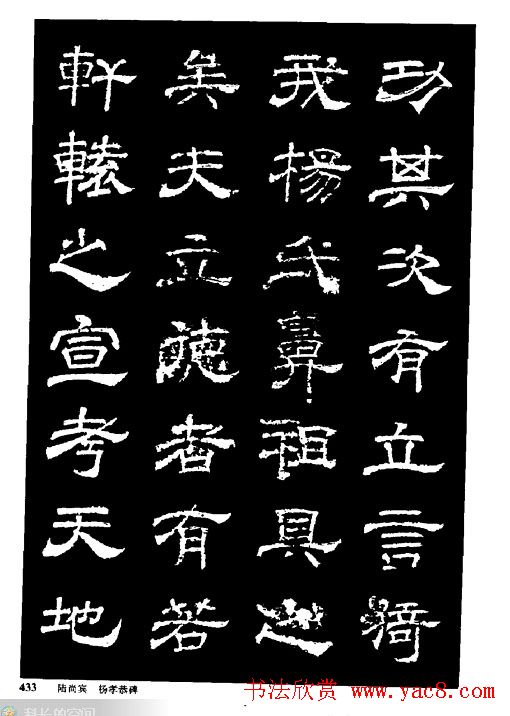 功其次有立言猗
我楊氏鼻祖具
矣夫立德者有若
軒轅之宣考天地
433 陆尚宾 杨孝恭碑
书法欣赏 www.yac8.com
科长的空间